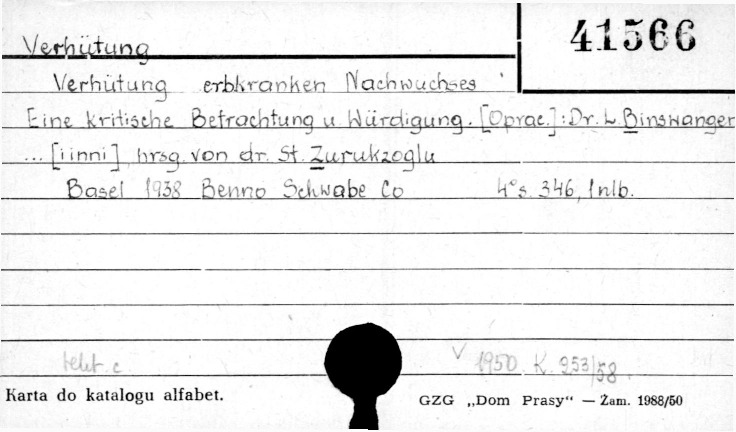 41566
Verhütung
Verhütung erbkranken Nachwuchses
Eine kritische Betrachtung u. Würdigung. [Oprac.]: Dr. L. Binswanger
... [i inni] hrsg. von dr. St. Zurukzoglu
Basel 1938 Benno Schwabe Co 4° s. 346, 1 nlb.
V 1950 K. 253/58.
Karta do katalogu alfabet.
GZG „Dom Prasy“ — Żam. 1988/50